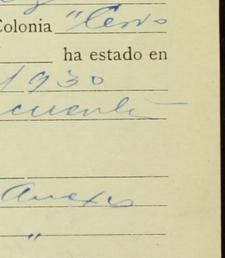 Colonia "Cerro
ha estado en
1930
cuenta
Anexos
"